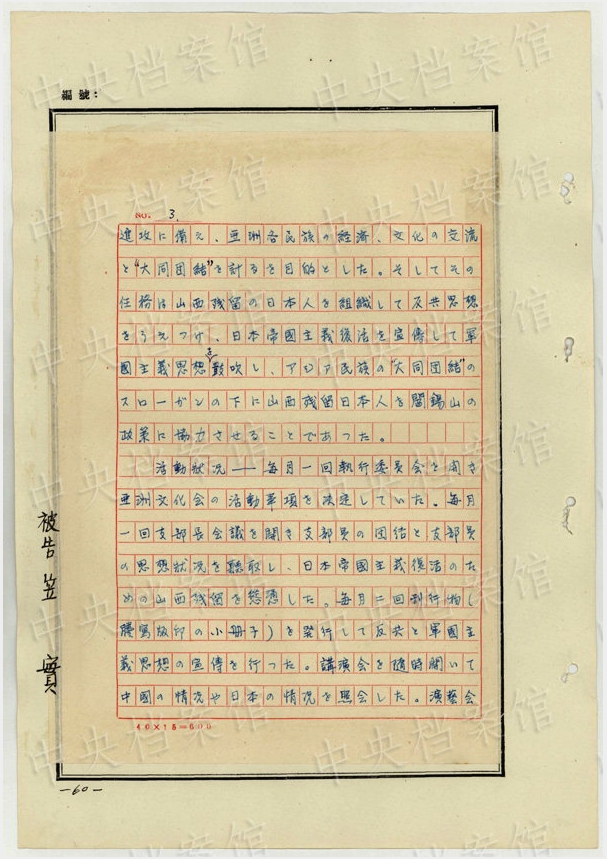 編號:
NO. 3.
進攻に備え、亜洲各民族の経済、文化の交流
と"大同団結"を計るを目的とした。そしてその
任務は山西残留の日本人を組織して反共思想
をうえつけ、日本帝國主義復活を宣傳して軍
國主義思想を鼓吹し、アジア民族の"大同団結"の
スローガンの下に山西残留日本人を閻錫山の
政策に協力させることであった。
活動狀況——毎月一回執行委員会を開き
亜洲文化会の活動事項を決定していた。毎月
一回支部長会議を開き支部員の団结と支部員
の思想狀况を聽取し、日本帝國主義復活のた
めの山西残留を慫慂した。毎月二回刊行物(
謄寫版印の小册子)を発行して反共と軍國主
義思想の宣傳を行った。講演会を随時開いて
中國の情况や日本の情况を照会した。演藝会
40×15=600
被告 笠 實
-60-
中央档案馆